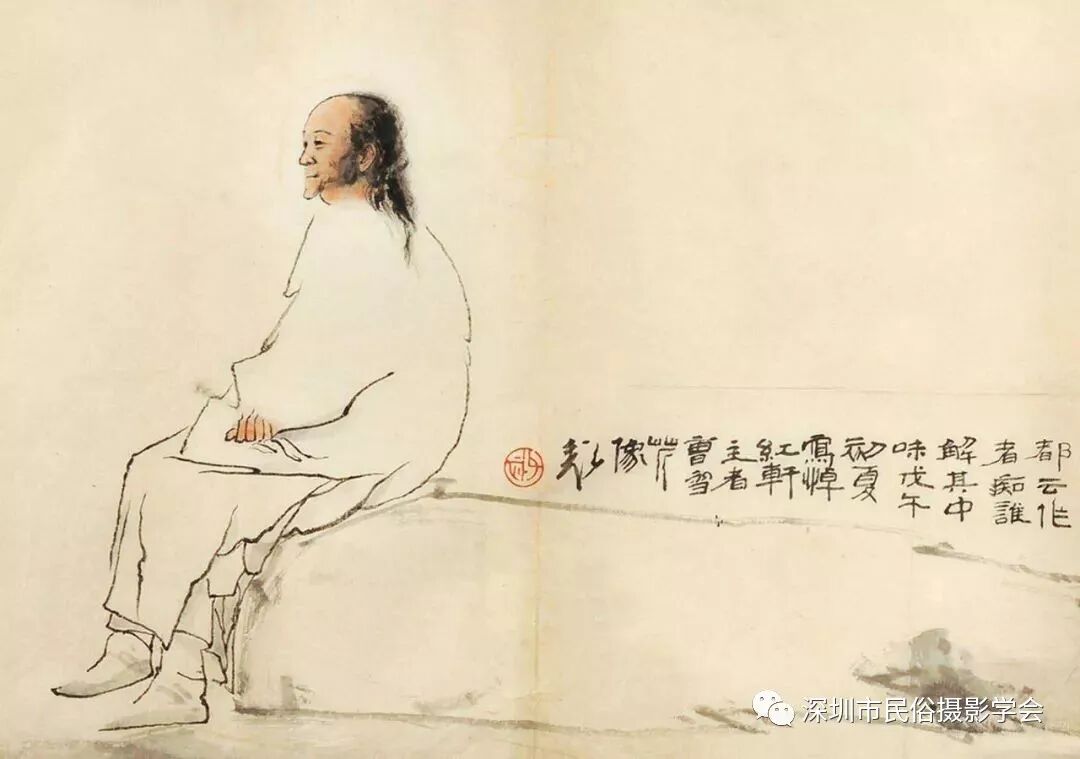 都云作
者痴誰
解其中
味戊午
初夏
寫悼
紅軒
主者
曹雪
芹
像
深圳市民俗摄影学会